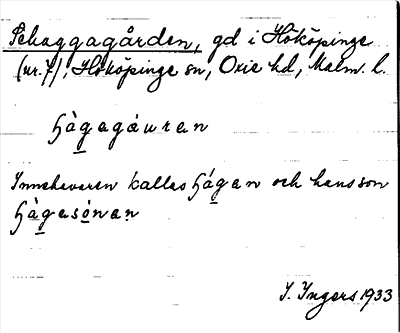 Schaggagården, gd i Hököpinge
(nr. 7), Hököpinge sn, Oxie hd, Malm. l.
ʃàgagáuran
Innehavaren kallas ʃágan och hans son
ʃàgasónan
I. Ingers 1933